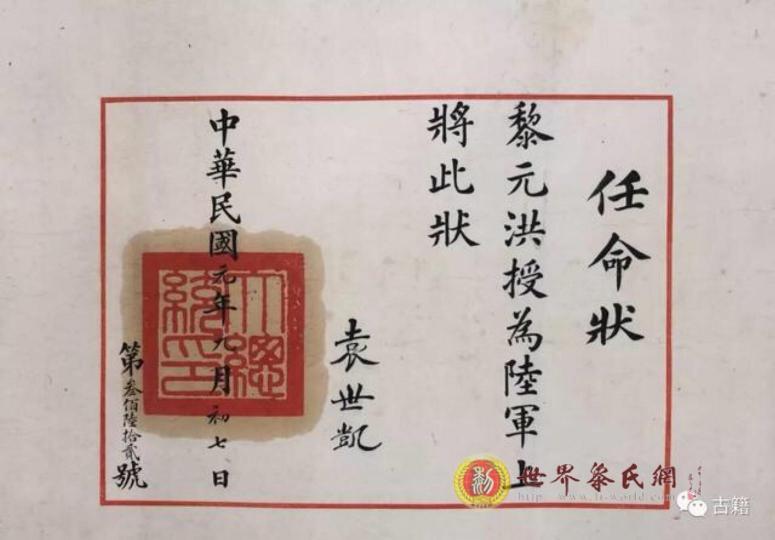 任命狀
黎元洪授為陸軍上
將此狀
袁世凱
中華民國元年九月初七日
大總統印
第叁佰陸拾貳號
世界黎氏網
古籍